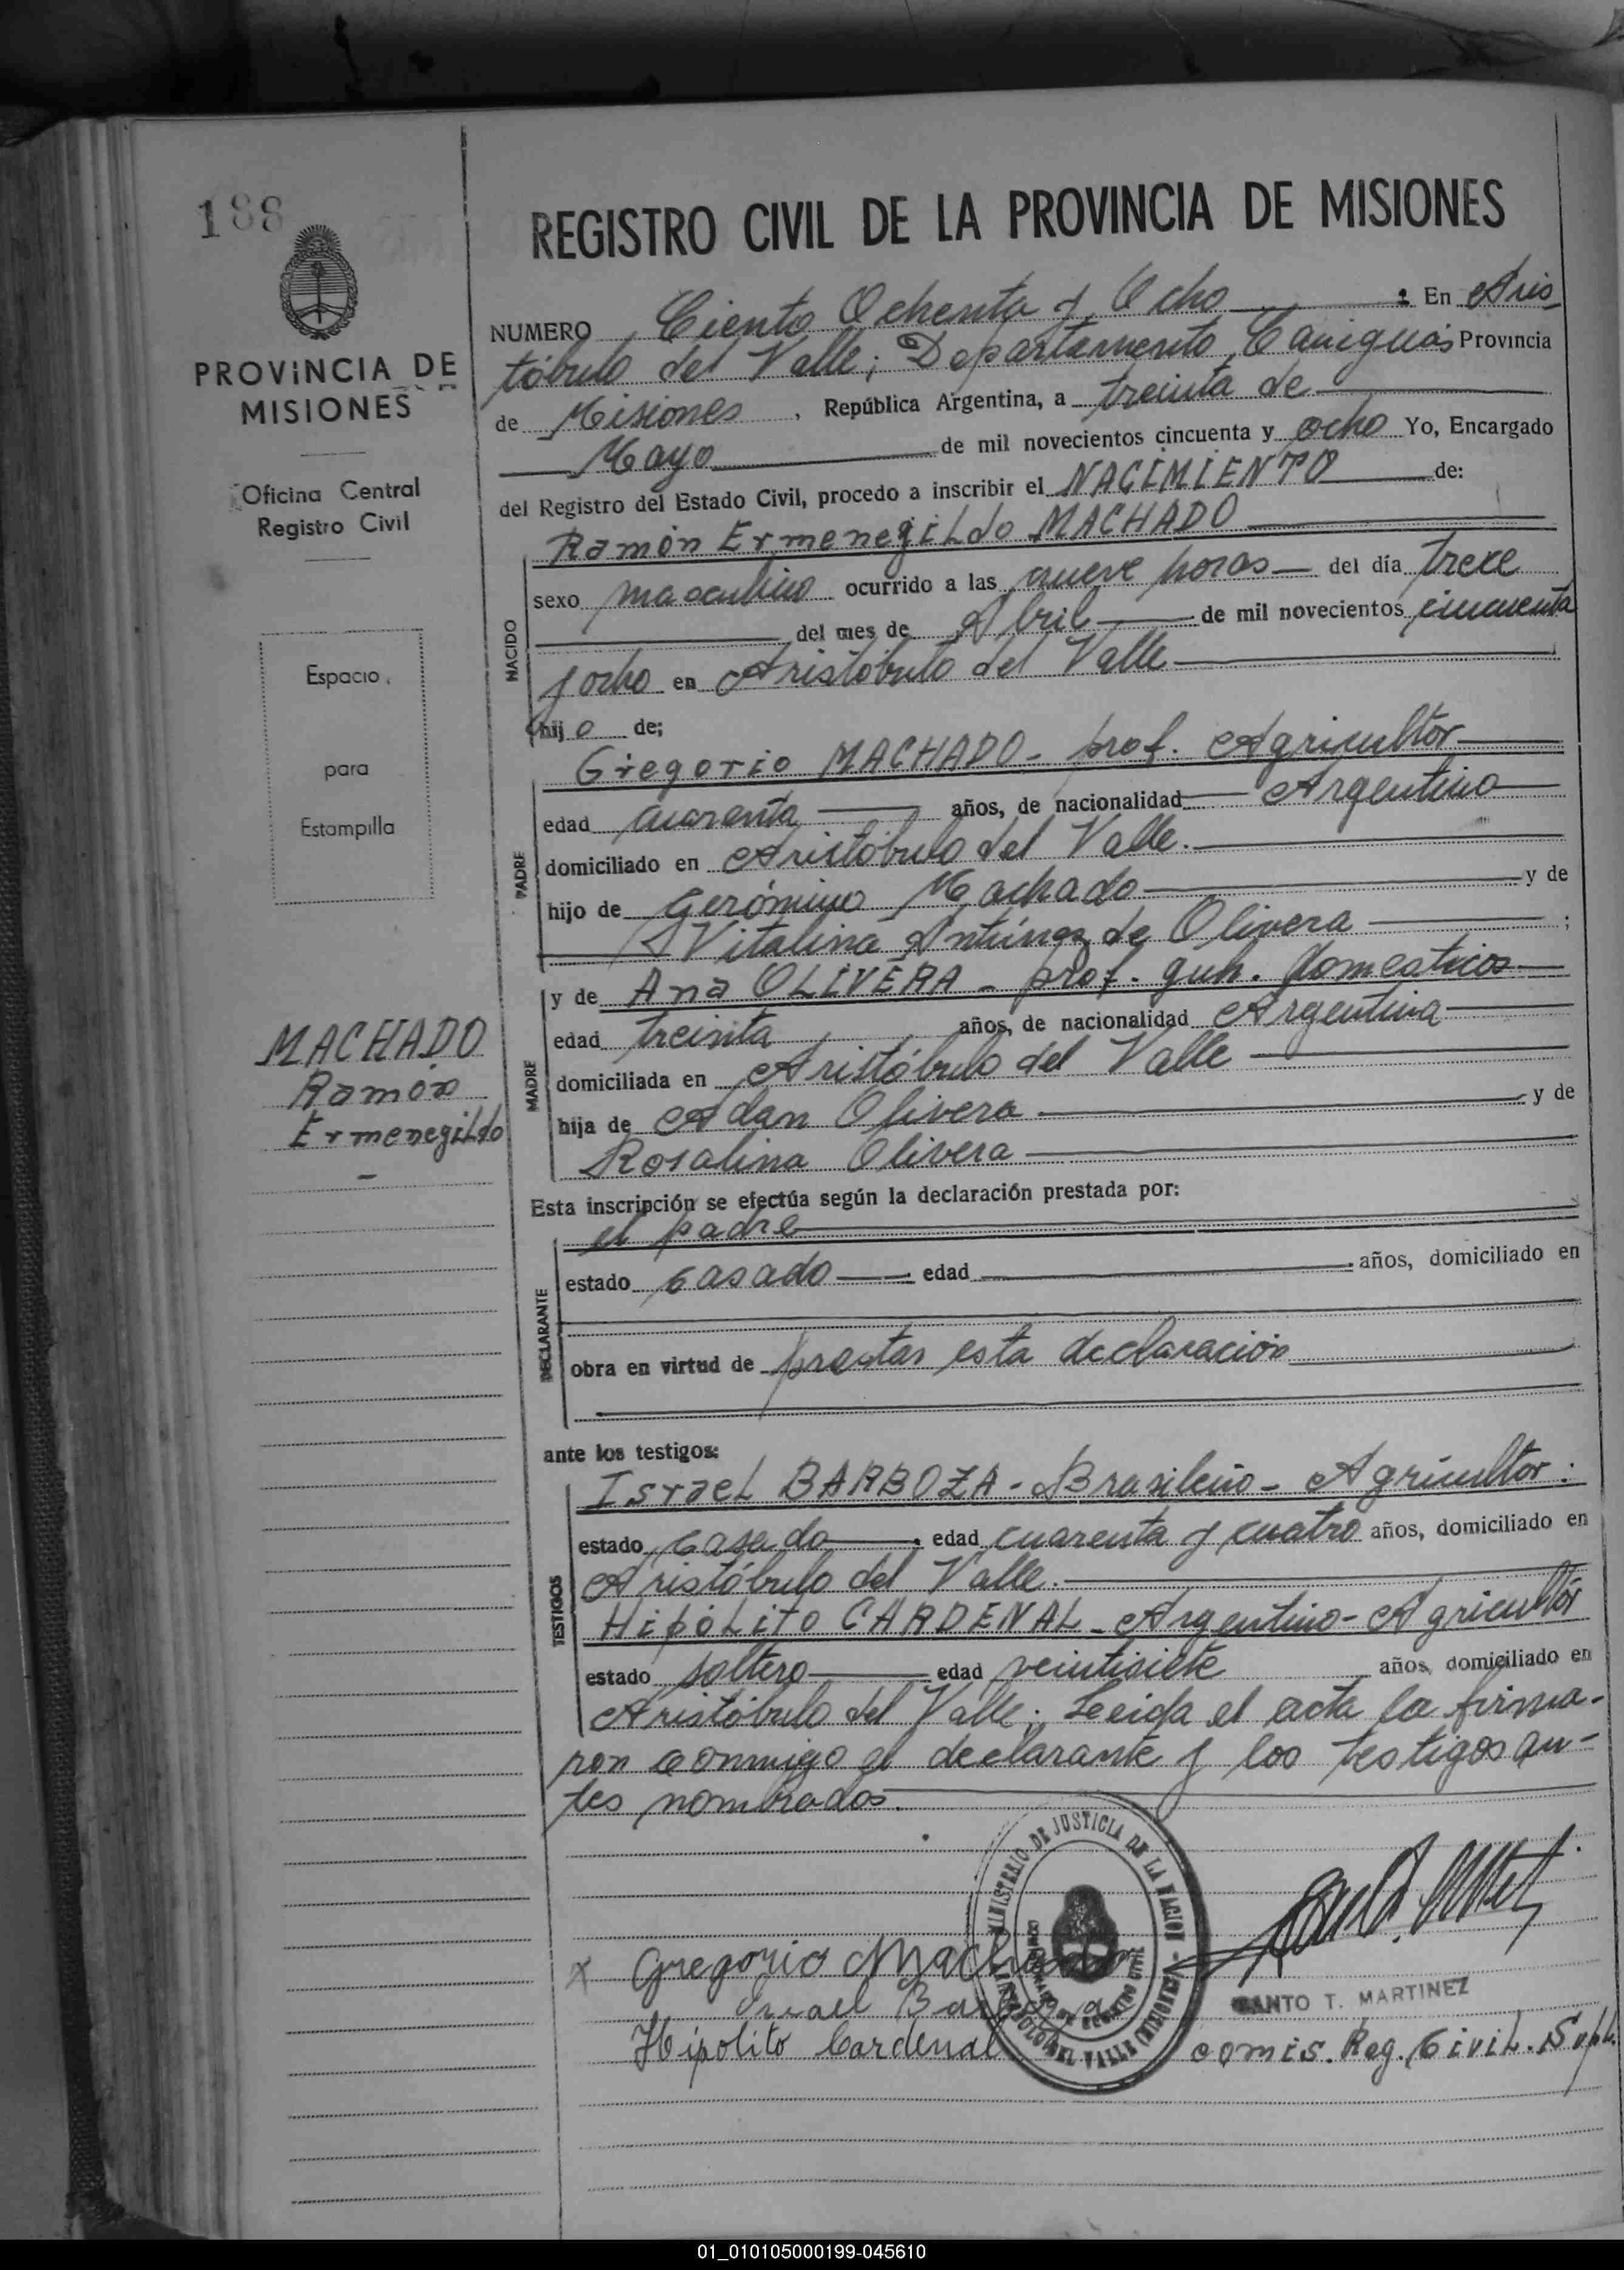 188
PROVINCIA DE
MISIONES
Oficina Central
Registro Civil
Espacio
para
Estampilla
MACHADO
Ramón
Ermenegildo
REGISTRO CIVIL DE LA PROVINCIA DE MISIONES
NUMERO Ciento Ochenta y Ocho En Aris
tóbulo del Valle; Departamento Cainguás Provincia
de Misiones, República Argentina, a treinta de
Mayo de mil novecientos cincuenta y ocho Yo, Encargado
del Registro del Estado Civil, procedo a inscribir el NACIMIENTO de:
NACIDO
Ramón Ermenegildo MACHADO
sexo masculino ocurrido a las nueve horas del día trece
del mes de Abril de mil novecientos cincuenta
y ocho en Aristóbulo del Valle
hijo de;
PADRE
Gregorio MACHADO - prof. Agricultor
edad cuarenta años, de nacionalidad Argentino
domiciliado en Aristóbulo del Valle.
hijo de Gerónimo Machado y de
Vitalina Antúnez de Olivera ;
MADRE
y de Ana OLIVERA - prof. queh. domesticos
edad treinta años, de nacionalidad Argentina
domiciliada en Aristóbulo del Valle
hija de Adan Olivera y de
Rosalina Olivera
Esta inscripción se efectúa según la declaración prestada por:
DECLARANTE
el padre
estado casado edad años, domiciliado en
obra en virtud de prestar esta declaración
ante los testigos:
TESTIGOS
Israel BARBOZA - Brasileño - Agricultor.
estado casado edad cuarenta y cuatro años, domiciliado en
Aristóbulo del Valle.
Hipólito CARDENAL - Argentino - Agricultor
estado soltero edad veintisiete años, domiciliado en
Aristóbulo del Valle. Leida el acta la firma-
ron conmigo el declarante y los testigos an-
tes nombrados.
MINISTERIO DE JUSTICIA DE LA NACION
Gregorio Machado
Israel Barboza
Hipolito Cardenal
SANTO T. MARTINEZ
comis. Reg. Civil. Supl.
01_010105000199-045610